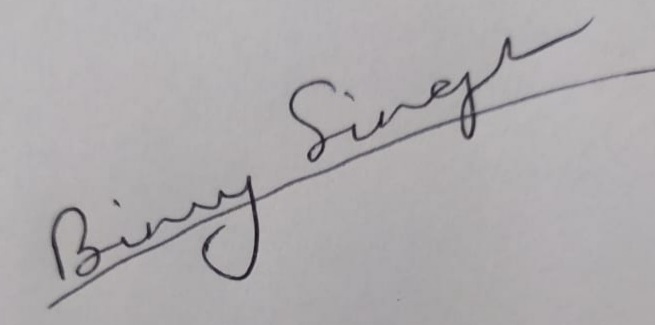 Binny Singh